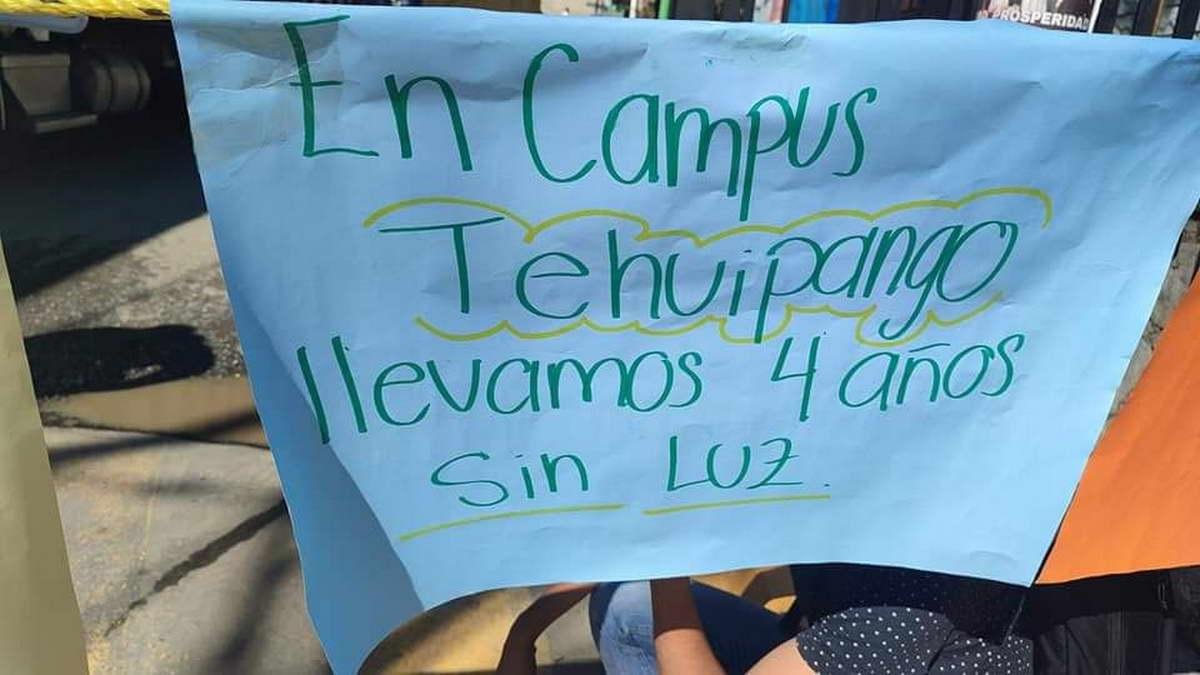 PROSPERIDAD
En Campus
Tehuipango
llevamos 4 años
Sin Luz.